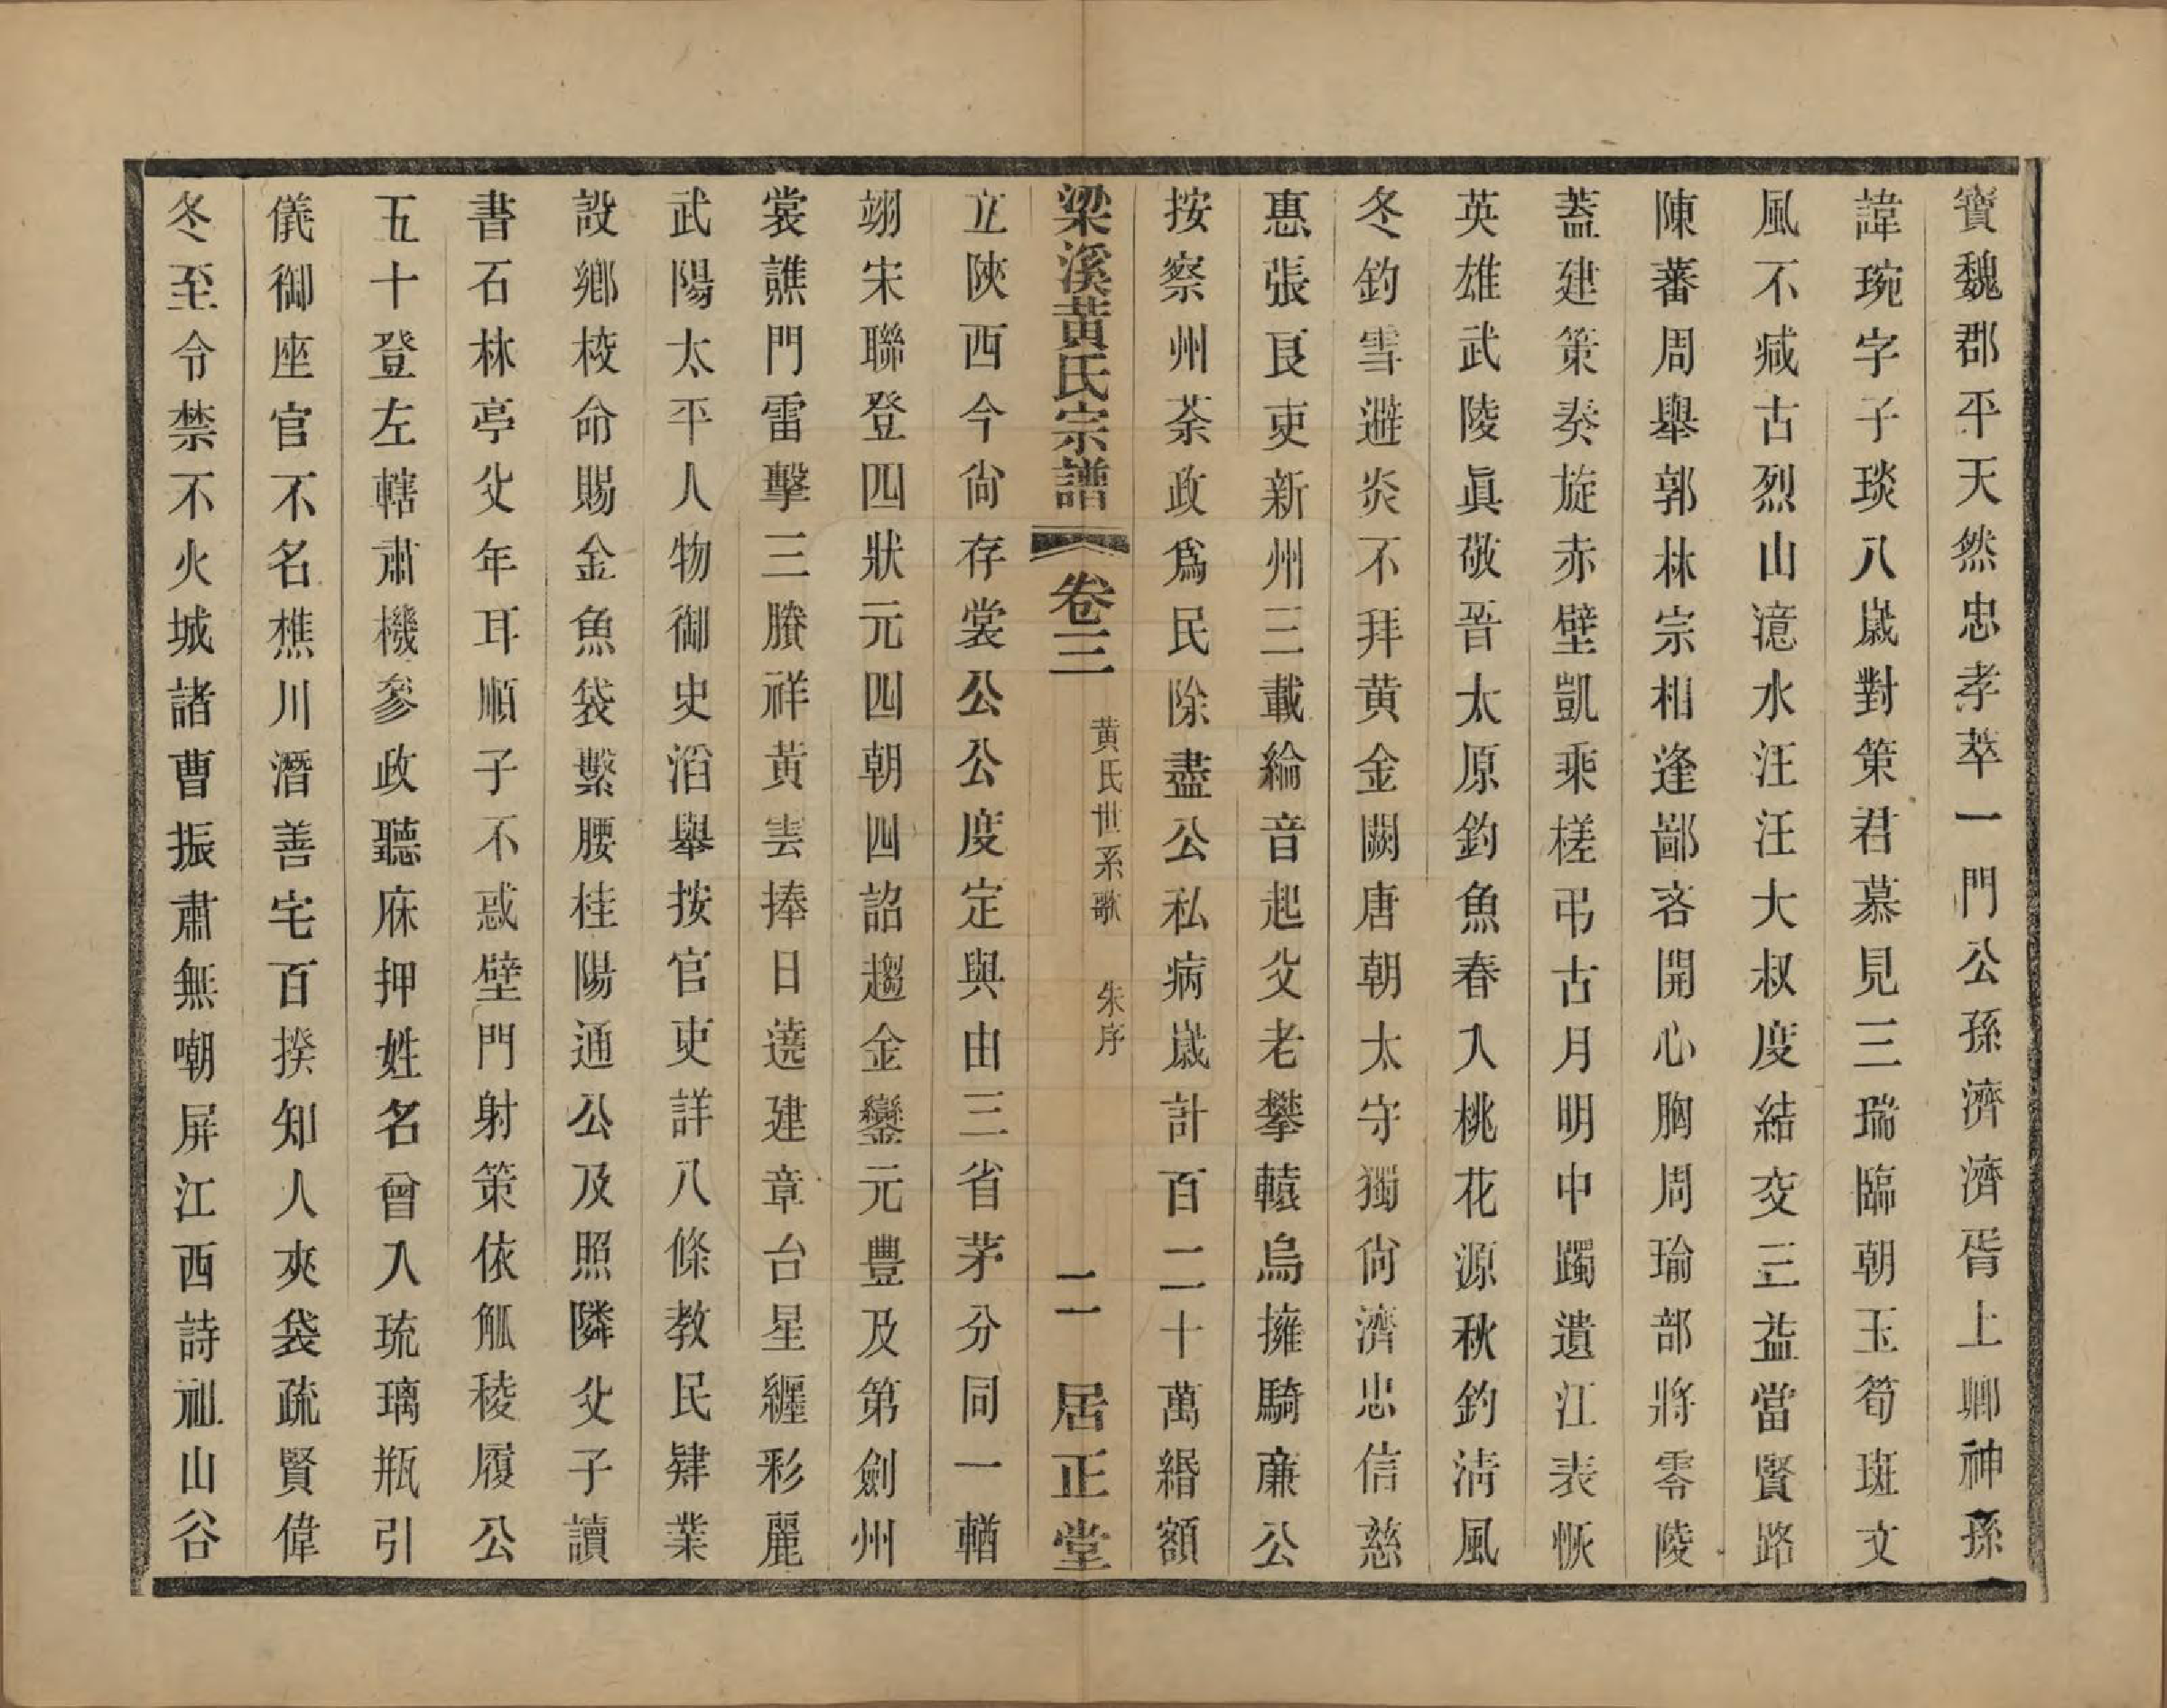 寶魏郡平天然忠孝萃一門公孫濟濟胥上卿神孫
諱琬字子琰八歲對策君慕見三瑞臨朝玉筍斑文
風不臧古烈山澺水汪汪大叔度結交三益當賢路
陳蕃周舉郭林宗相逢鄙吝開心胸周瑜部將零陵
蓋建策奏旋赤壁凱乘槎弔古月明中躅遺江表恢
英雄武陵眞敬晉太原釣魚春入桃花源秋釣淸風
冬釣雪避炎不拜黄金闕唐朝太守獨尙濟忠信慈
惠張良吏新州三載綸音起父老攀轅烏擁騎廉公
按察州荼政爲民除盡公私病歲計百二十萬緡額
梁溪黃氏宗譜 卷三 黄氏世系歌 朱序 二 居正堂
立陝西今尙存裳公公度定與由三省茅分同一輶
翊宋聯登四狀元四朝四詔趨金鑾元豐及第劍州
裳譙門雷擊三牓祥黃雲捧日遶建章台星纒彩麗
武陽太平人物御史滔舉按官吏詳八條教民肄業
設鄉校命賜金魚袋繫腰桂陽通公及照隣父子讀
書石林亭父年耳順子不惑壁門射策依觚稜履公
五十登左轄肅機參政聽麻押姓名曾入琉璃瓶引
儀御座官不名樵川潛善宅百揆知人夾袋疏賢偉
冬至令禁不火城諸曹振肅無嘲屏江西詩祖山谷